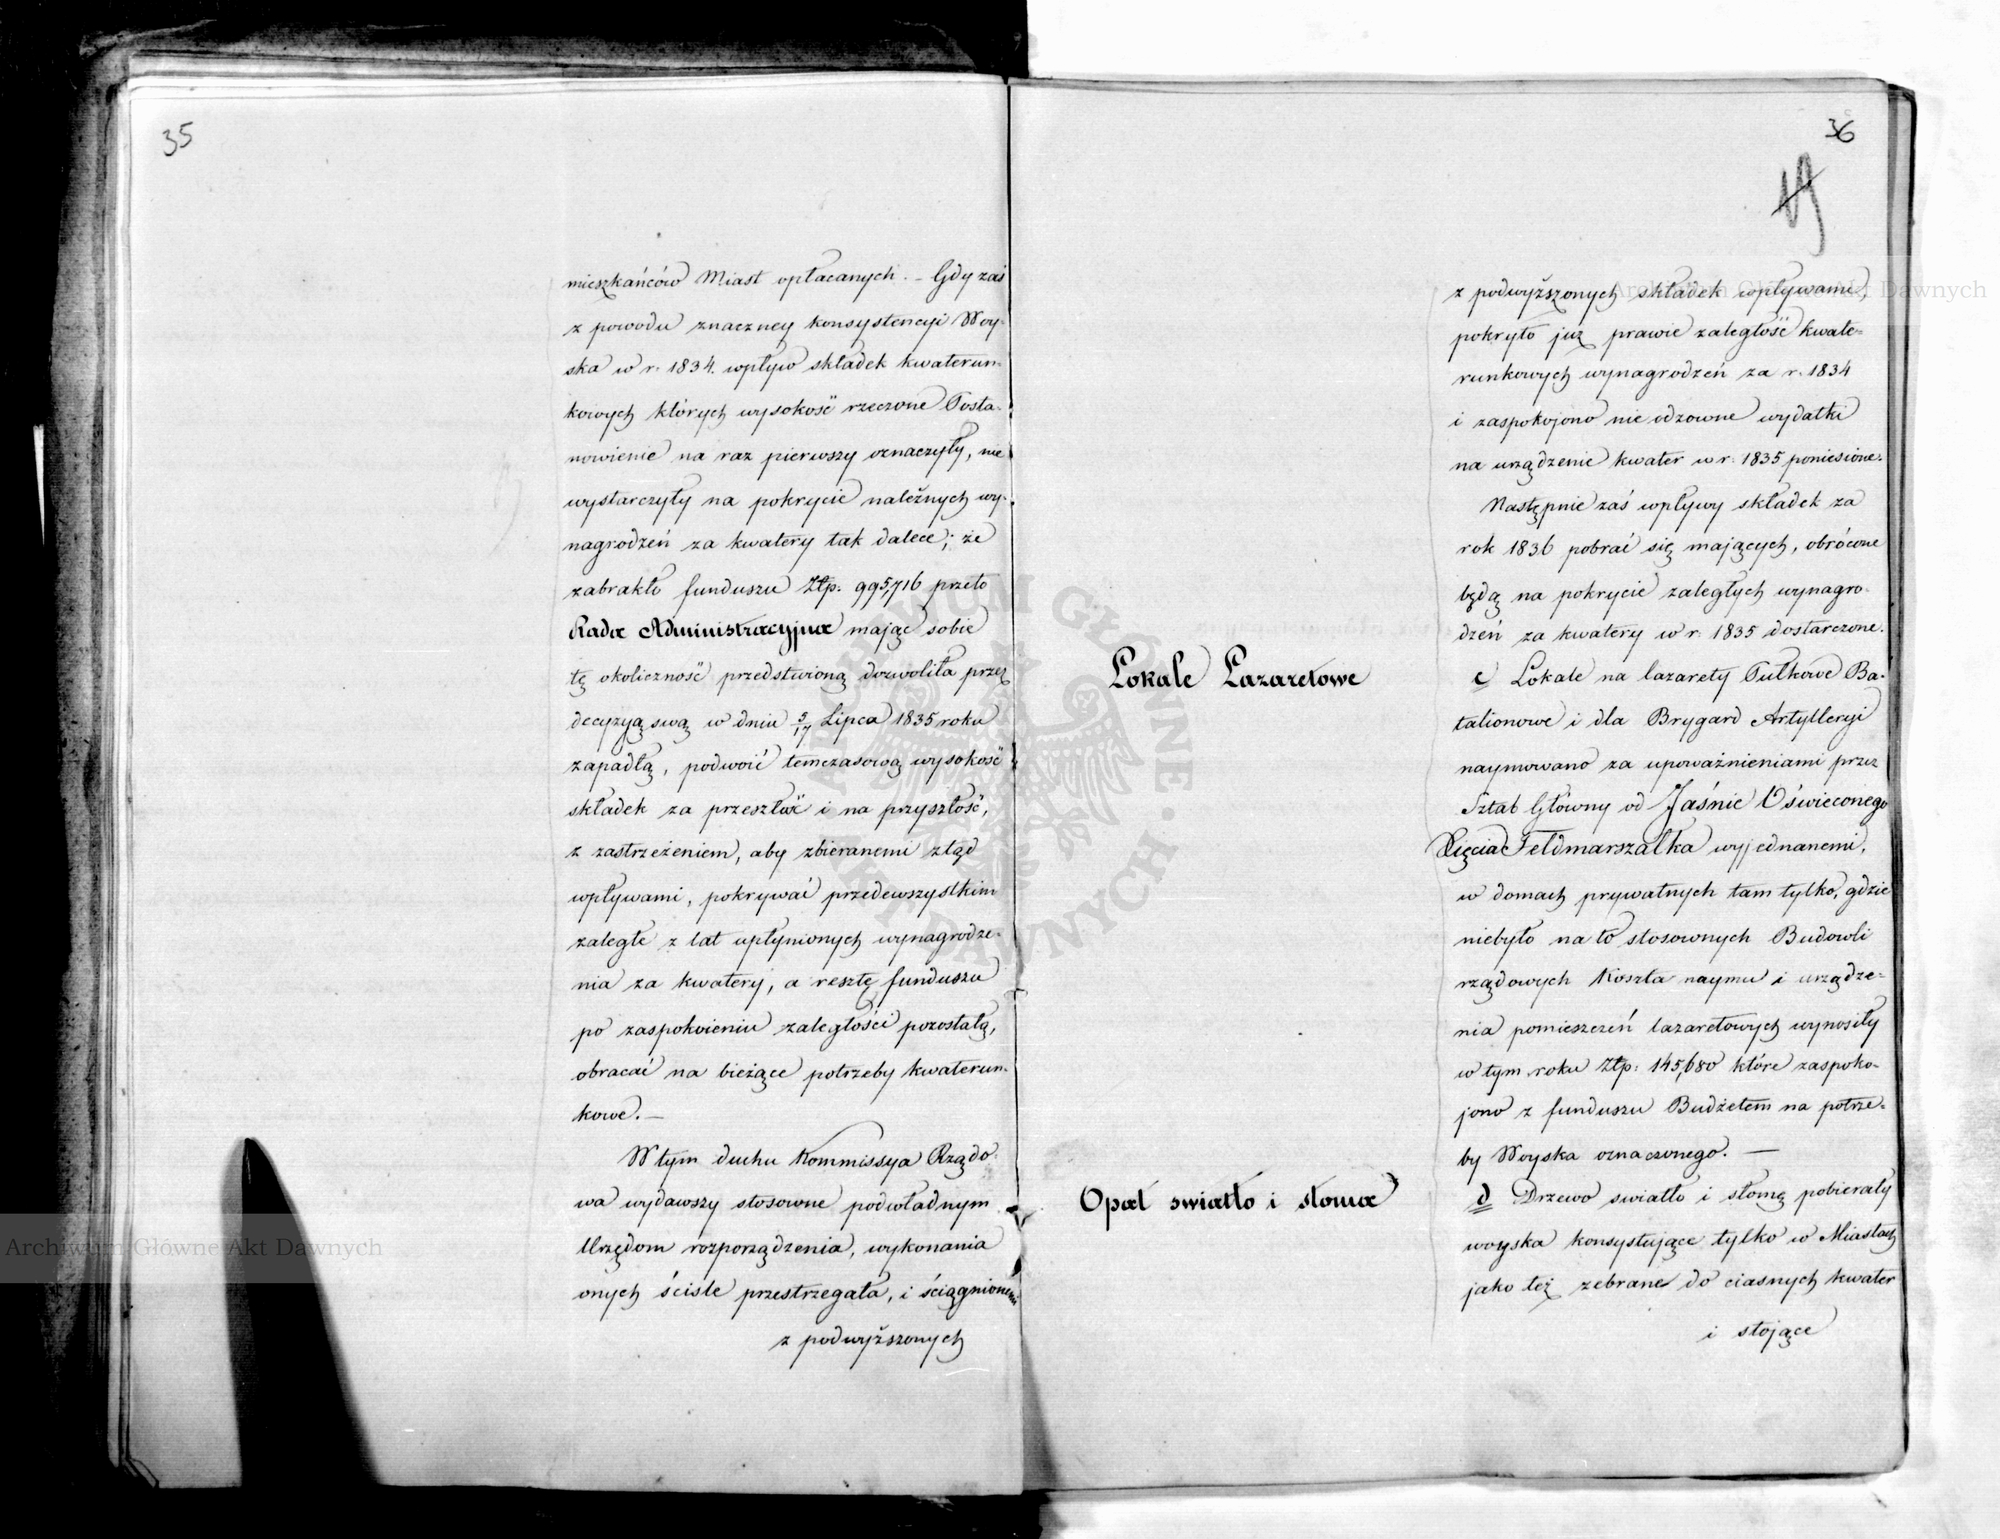 35
mieszkańców Miast opłacanych. – Gdy zaś
z powodu znaczney konsystencyi Woy-
ska w r. 1834. wpływ składek kwaterun-
kowych których wysokość rzeczone Posta-
nowienie na raz pierwszy oznaczyły, nie
wystarczyły na pokrycie należnych wy-
nagrodzeń za kwatery tak dalece; że
zabrakło funduszu Złp. 995,716 przeto
Rada Administracyjna mając sobie
tę okoliczność przedstwioną dozwoliła przez
decyzyą swą w dniu 5/17 Lipca 1835 roku
zapadłą, podwoić temczasową wysokość
składek za przeszłość i na przyszłość,
z zastrzeżeniem, aby zbieranemi ztąd
wpływami, pokrywać przedewszystkim
zaległe z lat upłynionych wynagrodze-
nia za kwatery, a resztę funduszu
po zaspokoieniu zaległości pozostałą,
obracać na bieżące potrzeby kwaterun-
kowe. –
W tym duchu Kommissya Rządo-
wa wydawszy stosowne podwładnym
Urzędom rozporządzenia, wykonania
onych ściśle przestrzegała, i ściągnionemi
z podwyższonych
36
19
z podwyższonych składek wpływami,
pokryto już prawie zaległość kwate-
runkowych wynagrodzeń za r. 1834
i zaspokojono nieodzowne wydatki
na urządzenie kwater w r. 1835 poniesione.
Następnie zaś wpływy składek za
rok 1836 pobrać się mających, obrócone
będą na pokrycie zaległych wynagro-
dzeń za kwatery w r. 1835 dostarczone.
Lokale Lazaretowe
c Lokale na lazarety Pułkowe Ba-
talionowe i dla Brygard Artylleryi
naymowano za upoważnieniami przez
Sztab Główny od Jaśnie Oświeconego
Xięcia Feldmarszałka wyjednanemi,
w domach prywatnych tam tylko, gdzie
niebyło na to stosownych Budowli
rządowych Koszta naymu i urządze-
nia pomieszczeń lazaretowych wynosiły
w tym roku Złp. 145,680 które zaspoko-
jono z funduszu Budżetem na potrze-
by Woyska oznaczonego. –
Opał swiatło i słoma
d Drzewo swiatło i słomę pobierały
woyska konsystujące tylko w Miastach
jako też zebrane do ciasnych kwater
i stojące
Archiwum Główne Akt Dawnych
Archiwum Główne Akt Dawnych
ARCHIWUM GŁÓWNE · AKT DAWNYCH ·